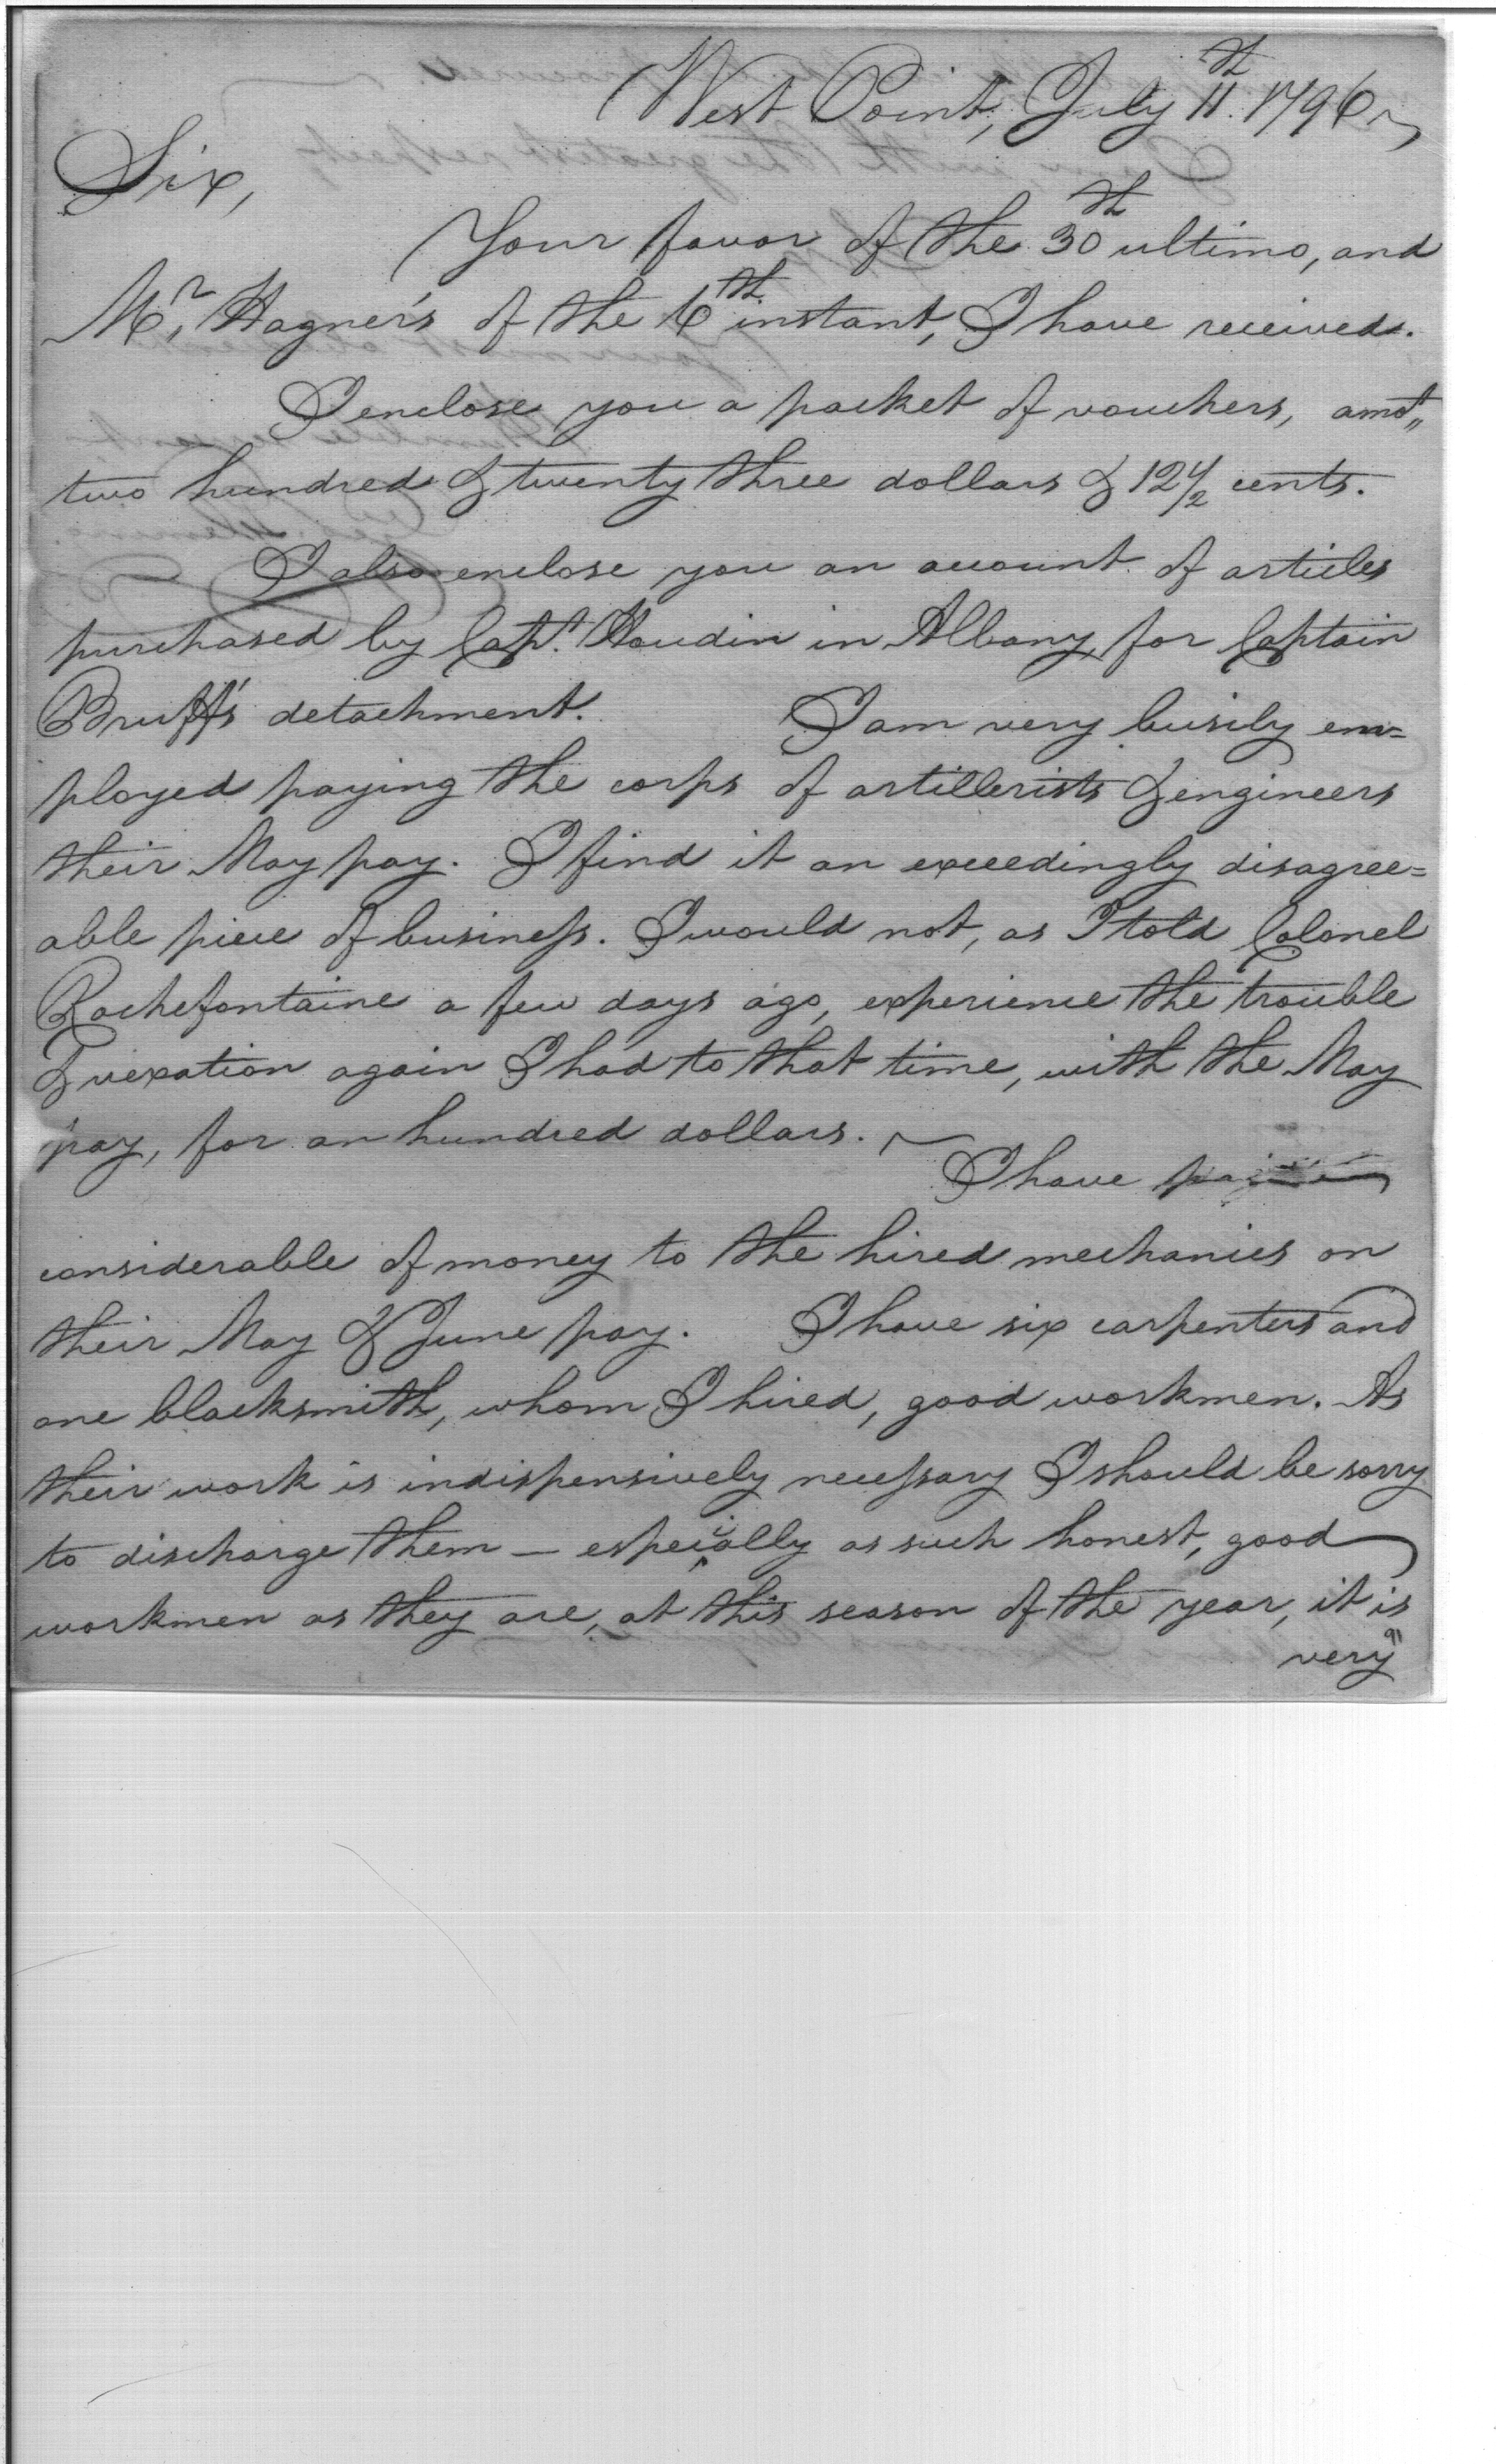 West Point, July 11th. 1796
Sir,
Your favor of the 30th ultimo, and
Mr. Hagner's of the 6th instant, I have received.
I enclose you a packet of vouchers, amot"
two hundred & twenty three dollars & 12 1/2 cents.
I also enclose you an account of articles
purchased by Capt. Houdin in Albany, for Captain
Bruff's detachment. I am very busily em=
ployed paying the corps of artillerists & engineers
their May pay. I find it an exceedingly disagree=
able piece of business. I would not, as I told Colonel
Rochefontaine a few days ago, experience the trouble
& vexation again I had to that time, with the May
pay, for an hundred dollars. ~
I have paid
considerable of money to the hired mechanics on
their May & June pay. I have six carpenters and
one blacksmith, whom I hired, good workmen. As
their work is indispensively necessary I should be sorry
to discharge them — especially as such honest, good
workmen as they are, at this season of the year, it is
very"